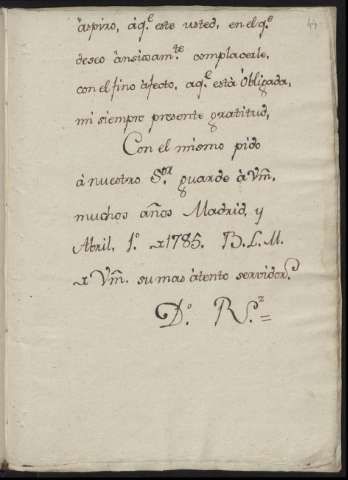 aspiro, áq.e este usted, en el q.e
deseo ànsioam.te complacerle,
con el fino àfecto, aq.e està Óbligada,
mi siempre presente gratitud,
Con el mismo pido
à nuestro S.or guarde à Vm̃.
muchos años Madrid, y
Abril, 1.º de 1785. B. L. M.
de Vm̃. su mas àtento servidor.
D.º R.z =